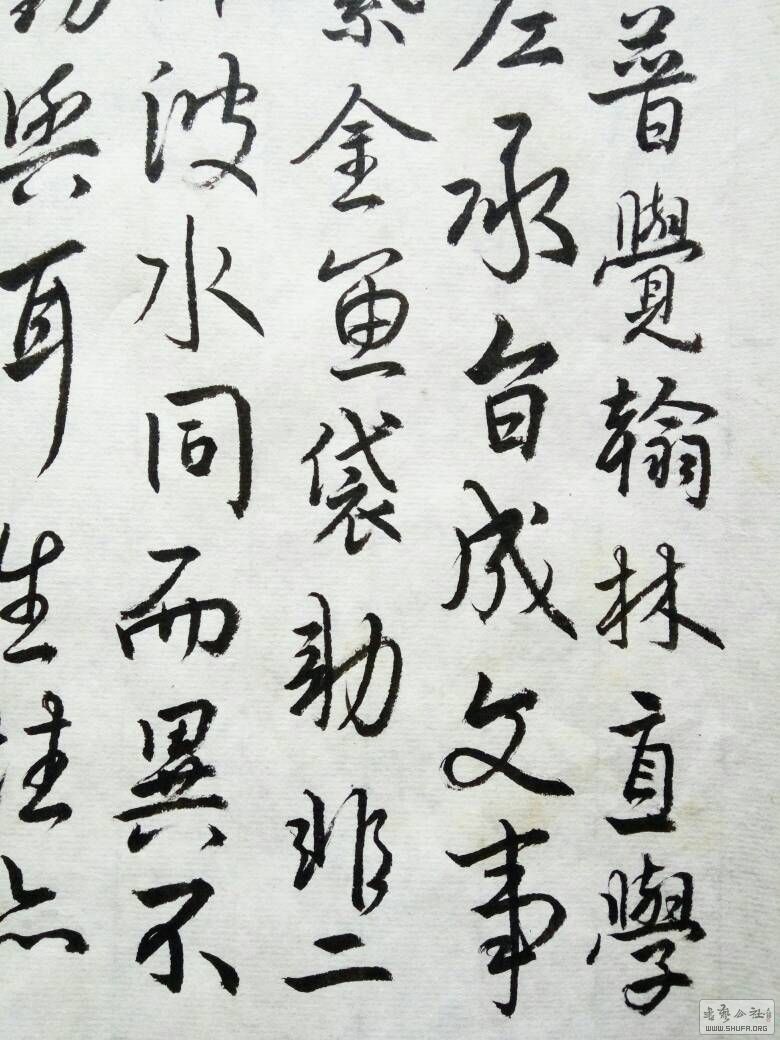 普覺翰林直學
承旨成文事
紫金魚袋動非二
波水同而異不
與耳生住亦
書藝公社
WWW.SHUFA.ORG